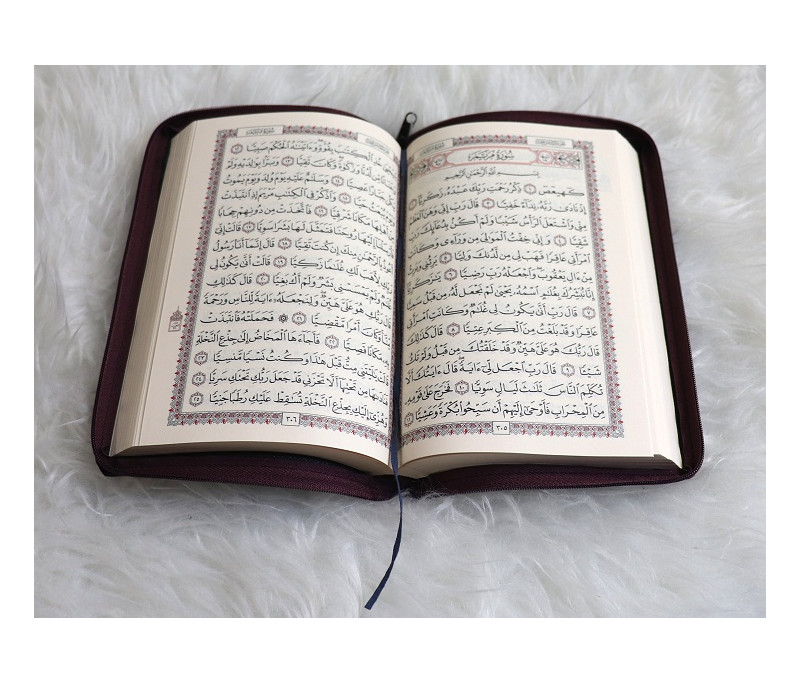 سُورَةُ مَرْيَمَ
بِسْمِ ٱللَّهِ ٱلرَّحْمَٰنِ ٱلرَّحِيمِ
كٓهيعٓصٓ ١ ذِكْرُ رَحْمَتِ رَبِّكَ عَبْدَهُۥ زَكَرِيَّآ ٢
إِذْ نَادَىٰ رَبَّهُۥ نِدَآءً خَفِيًّا ٣ قَالَ رَبِّ إِنِّى وَهَنَ ٱلْعَظْمُ
مِنِّى وَٱشْتَعَلَ ٱلرَّأْسُ شَيْبًا وَلَمْ أَكُنۢ بِدُعَآئِكَ رَبِّ
شَقِيًّا ٤ وَإِنِّى خِفْتُ ٱلْمَوَٰلِىَ مِن وَرَآءِى وَكَانَتِ
ٱمْرَأَتِى عَاقِرًا فَهَبْ لِى مِن لَّدُنكَ وَلِيًّا ٥ يَرِثُنِى وَيَرِثُ
مِنْ ءَالِ يَعْقُوبَ وَٱجْعَلْهُ رَبِّ رَضِيًّا ٦ يَٰزَكَرِيَّآ
إِنَّا نُبَشِّرُكَ بِغُلَٰمٍ ٱسْمُهُۥ يَحْيَىٰ لَمْ نَجْعَل لَّهُۥ مِن قَبْلُ سَمِيًّا
٧ قَالَ رَبِّ أَنَّىٰ يَكُونُ لِى غُلَٰمٌ وَكَانَتِ ٱمْرَأَتِى
عَاقِرًا وَقَدْ بَلَغْتُ مِنَ ٱلْكِبَرِ عِتِيًّا ٨ قَالَ كَذَٰلِكَ
قَالَ رَبُّكَ هُوَ عَلَىَّ هَيِّنٌ وَقَدْ خَلَقْتُكَ مِن قَبْلُ وَلَمْ تَكُ
شَيْـًٔا ٩ قَالَ رَبِّ ٱجْعَل لِّىٓ ءَايَةً قَالَ ءَايَتُكَ أَلَّا
تُكَلِّمَ ٱلنَّاسَ ثَلَٰثَ لَيَالٍ سَوِيًّا ١٠ فَخَرَجَ عَلَىٰ قَوْمِهِۦ
مِنَ ٱلْمِحْرَابِ فَأَوْحَىٰٓ إِلَيْهِمْ أَن سَبِّحُوا۟ بُكْرَةً وَعَشِيًّا ١١
٣٠٥
سُورَةُ مَرْيَمَ
خُذِ ٱلْكِتَٰبَ بِقُوَّةٍ وَءَاتَيْنَٰهُ ٱلْحُكْمَ صَبِيًّا ١٢
وَزَكَوٰةً وَكَانَ تَقِيًّا ١٣ وَبَرًّۢا بِوَٰلِدَيْهِ وَلَمْ
عَصِيًّا ١٤ وَسَلَٰمٌ عَلَيْهِ يَوْمَ وُلِدَ وَيَوْمَ يَمُوتُ
حَيًّا ١٥ وَٱذْكُرْ فِى ٱلْكِتَٰبِ مَرْيَمَ إِذِ ٱنتَبَذَتْ
مَكَانًا شَرْقِيًّا ١٦ فَٱتَّخَذَتْ مِن دُونِهِمْ حِجَابًا
إِلَيْهَا رُوحَنَا فَتَمَثَّلَ لَهَا بَشَرًا سَوِيًّا ١٧ قَالَتْ إِنِّىٓ
بِٱلرَّحْمَٰنِ مِنكَ إِن كُنتَ تَقِيًّا ١٨ قَالَ إِنَّمَآ أَنَا۠ رَسُولُ
رَبِّكِ لِأَهَبَ لَكِ غُلَٰمًا زَكِيًّا ١٩ قَالَتْ أَنَّىٰ يَكُونُ لِى
وَلَمْ يَمْسَسْنِى بَشَرٌ وَلَمْ أَكُ بَغِيًّا ٢٠ قَالَ كَذَٰلِكِ
رَبُّكِ هُوَ عَلَىَّ هَيِّنٌ وَلِنَجْعَلَهُۥٓ ءَايَةً لِّلنَّاسِ وَرَحْمَةً
مِّنَّا وَكَانَ أَمْرًا مَّقْضِيًّا ٢١ ۞ فَحَمَلَتْهُ فَٱنتَبَذَتْ
مَكَانًا قَصِيًّا ٢٢ فَأَجَآءَهَا ٱلْمَخَاضُ إِلَىٰ جِذْعِ ٱلنَّخْلَةِ
قَالَتْ يَٰلَيْتَنِى مِتُّ قَبْلَ هَٰذَا وَكُنتُ نَسْيًا مَّنسِيًّا ٢٣
فَنَادَىٰهَا مِن تَحْتِهَآ أَلَّا تَحْزَنِى قَدْ جَعَلَ رَبُّكِ تَحْتَكِ سَرِيًّا ٢٤
وَهُزِّىٓ إِلَيْكِ بِجِذْعِ ٱلنَّخْلَةِ تُسَٰقِطْ عَلَيْكِ رُطَبًا جَنِيًّا ٢٥
٣٠٦